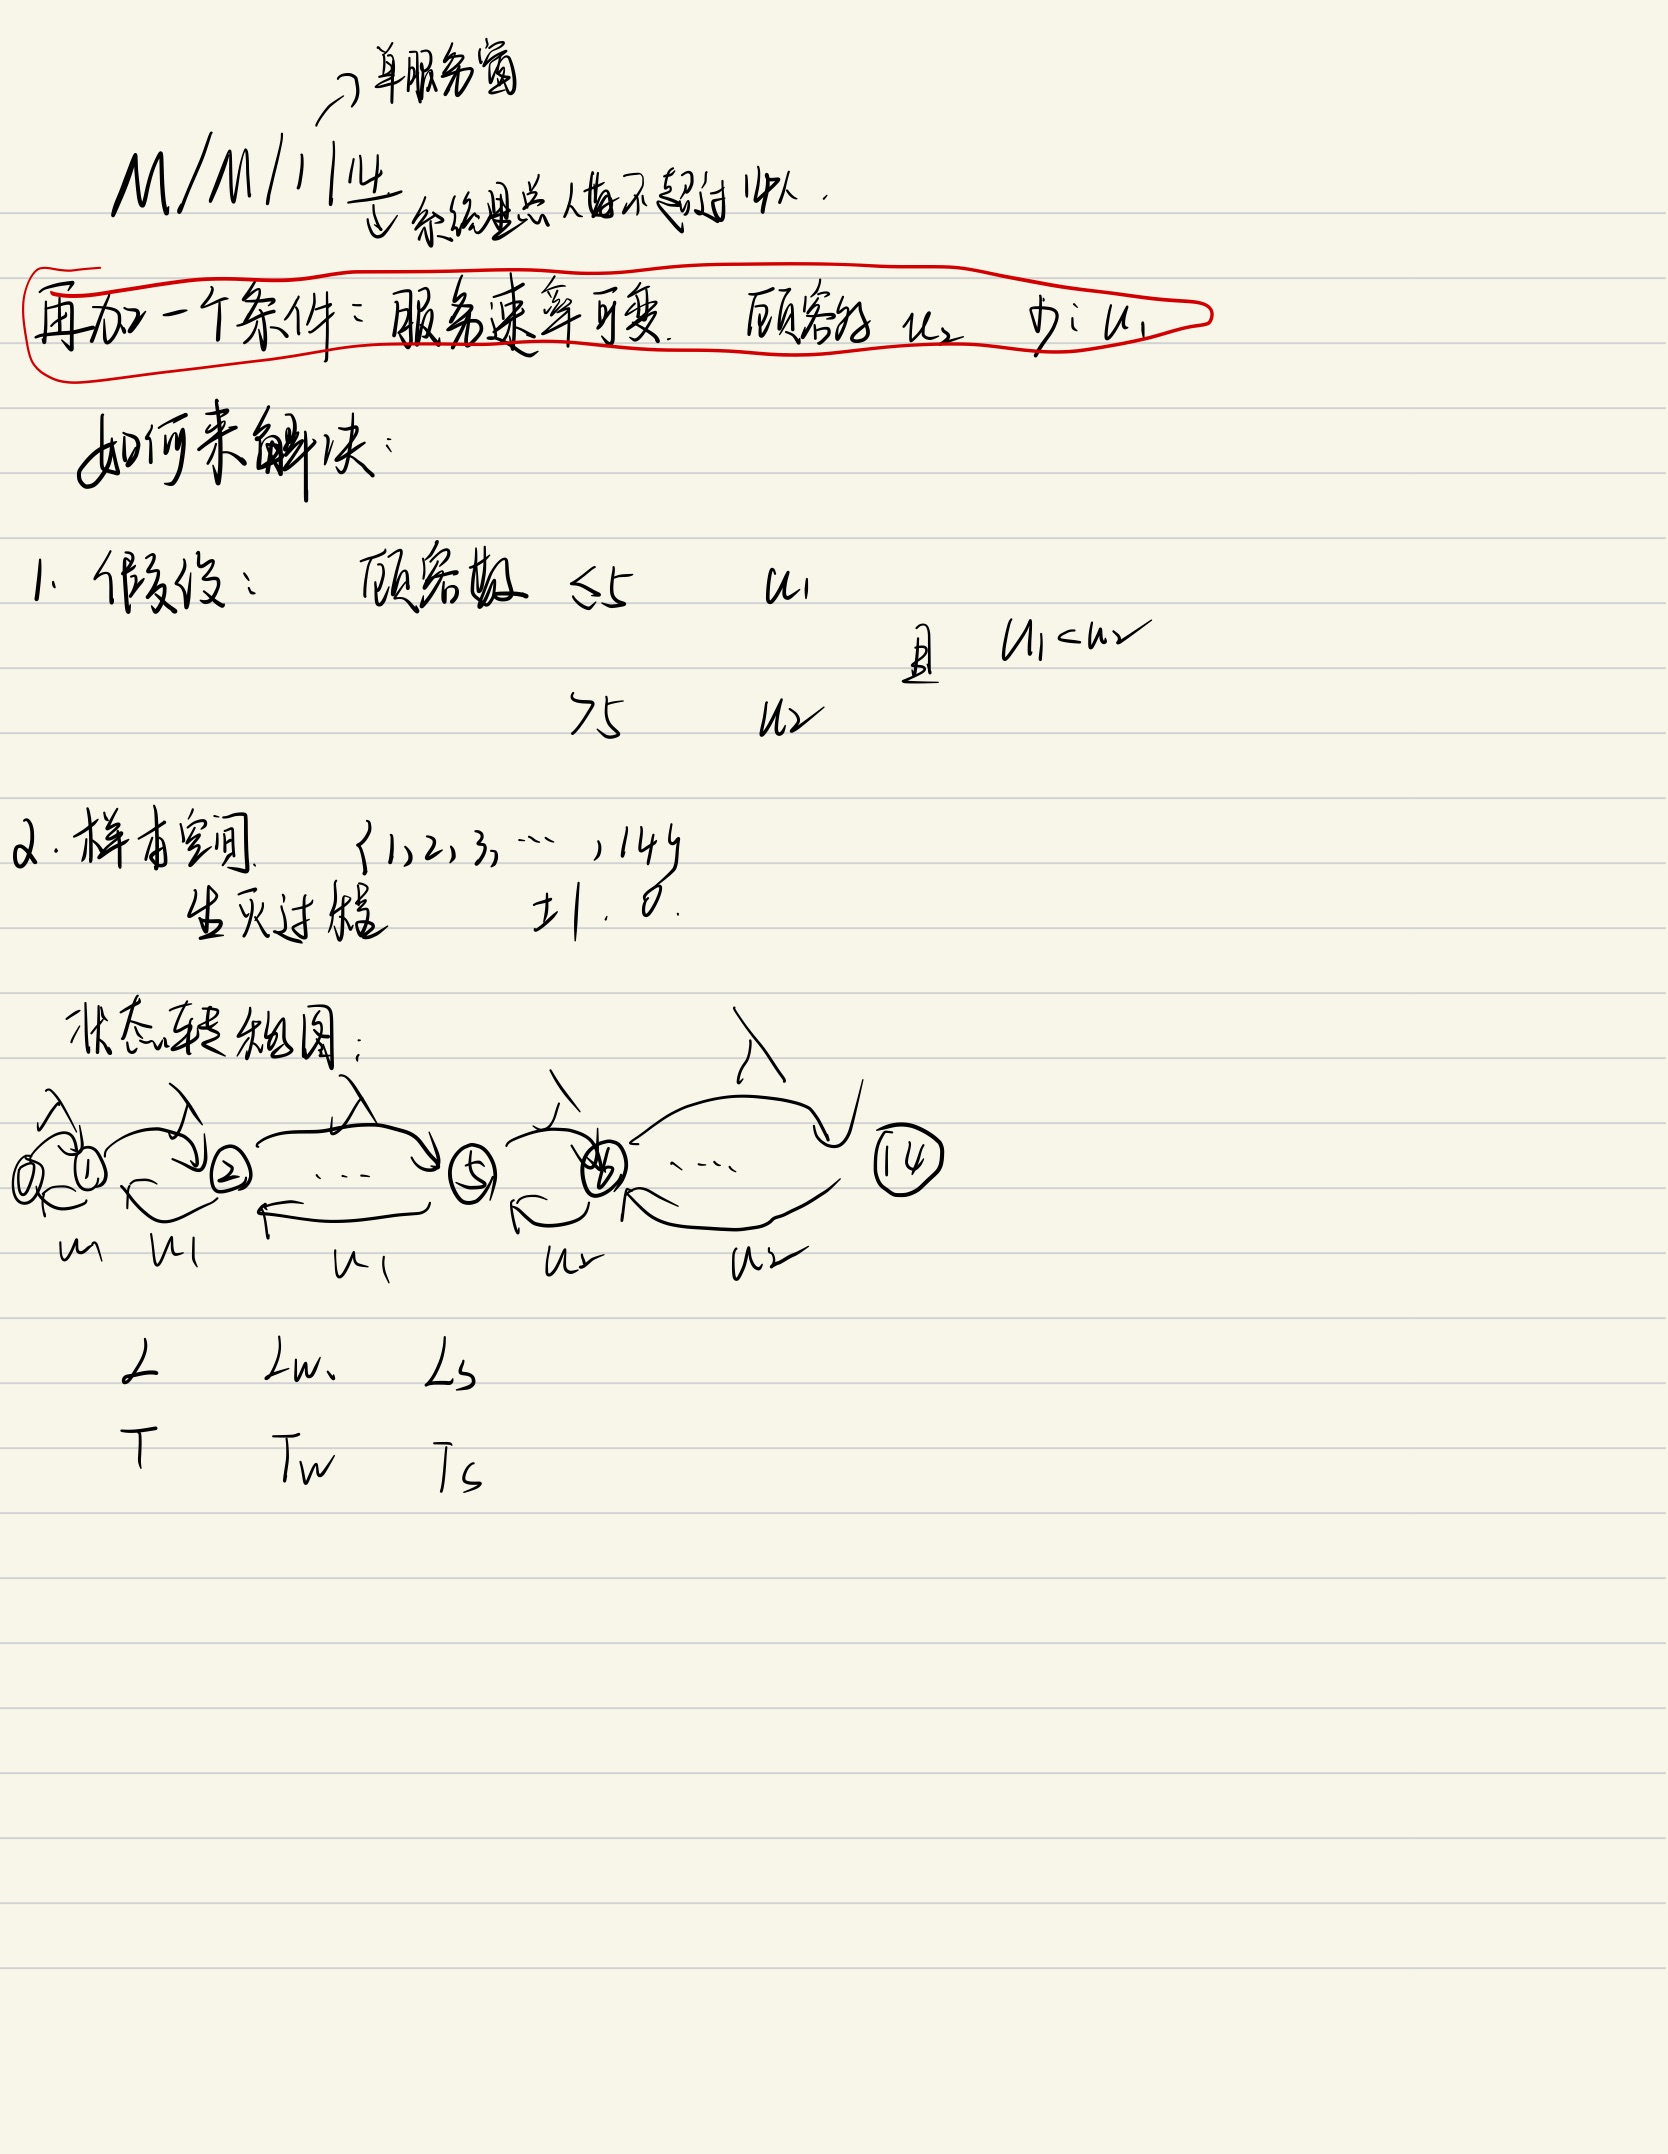 单服务窗
M/M/1/14
系统里总人数不超过14人.
再加一个条件:服务速率可变. 顾客多 u₂ 少:u₁
如何来解决:
1. 假设: 顾客数 ≤5 u₁
且 u₁<u₂
>5 u₂
2. 样本空间. {1,2,3,…,14}
生灭过程 ±1. 0.
状态转移图:
λ λ λ λ λ
0 1 2 … 5 6 … 14
u₁ u₁ u₁ u₂ u₂
L Lw. Ls
T Tw Ts